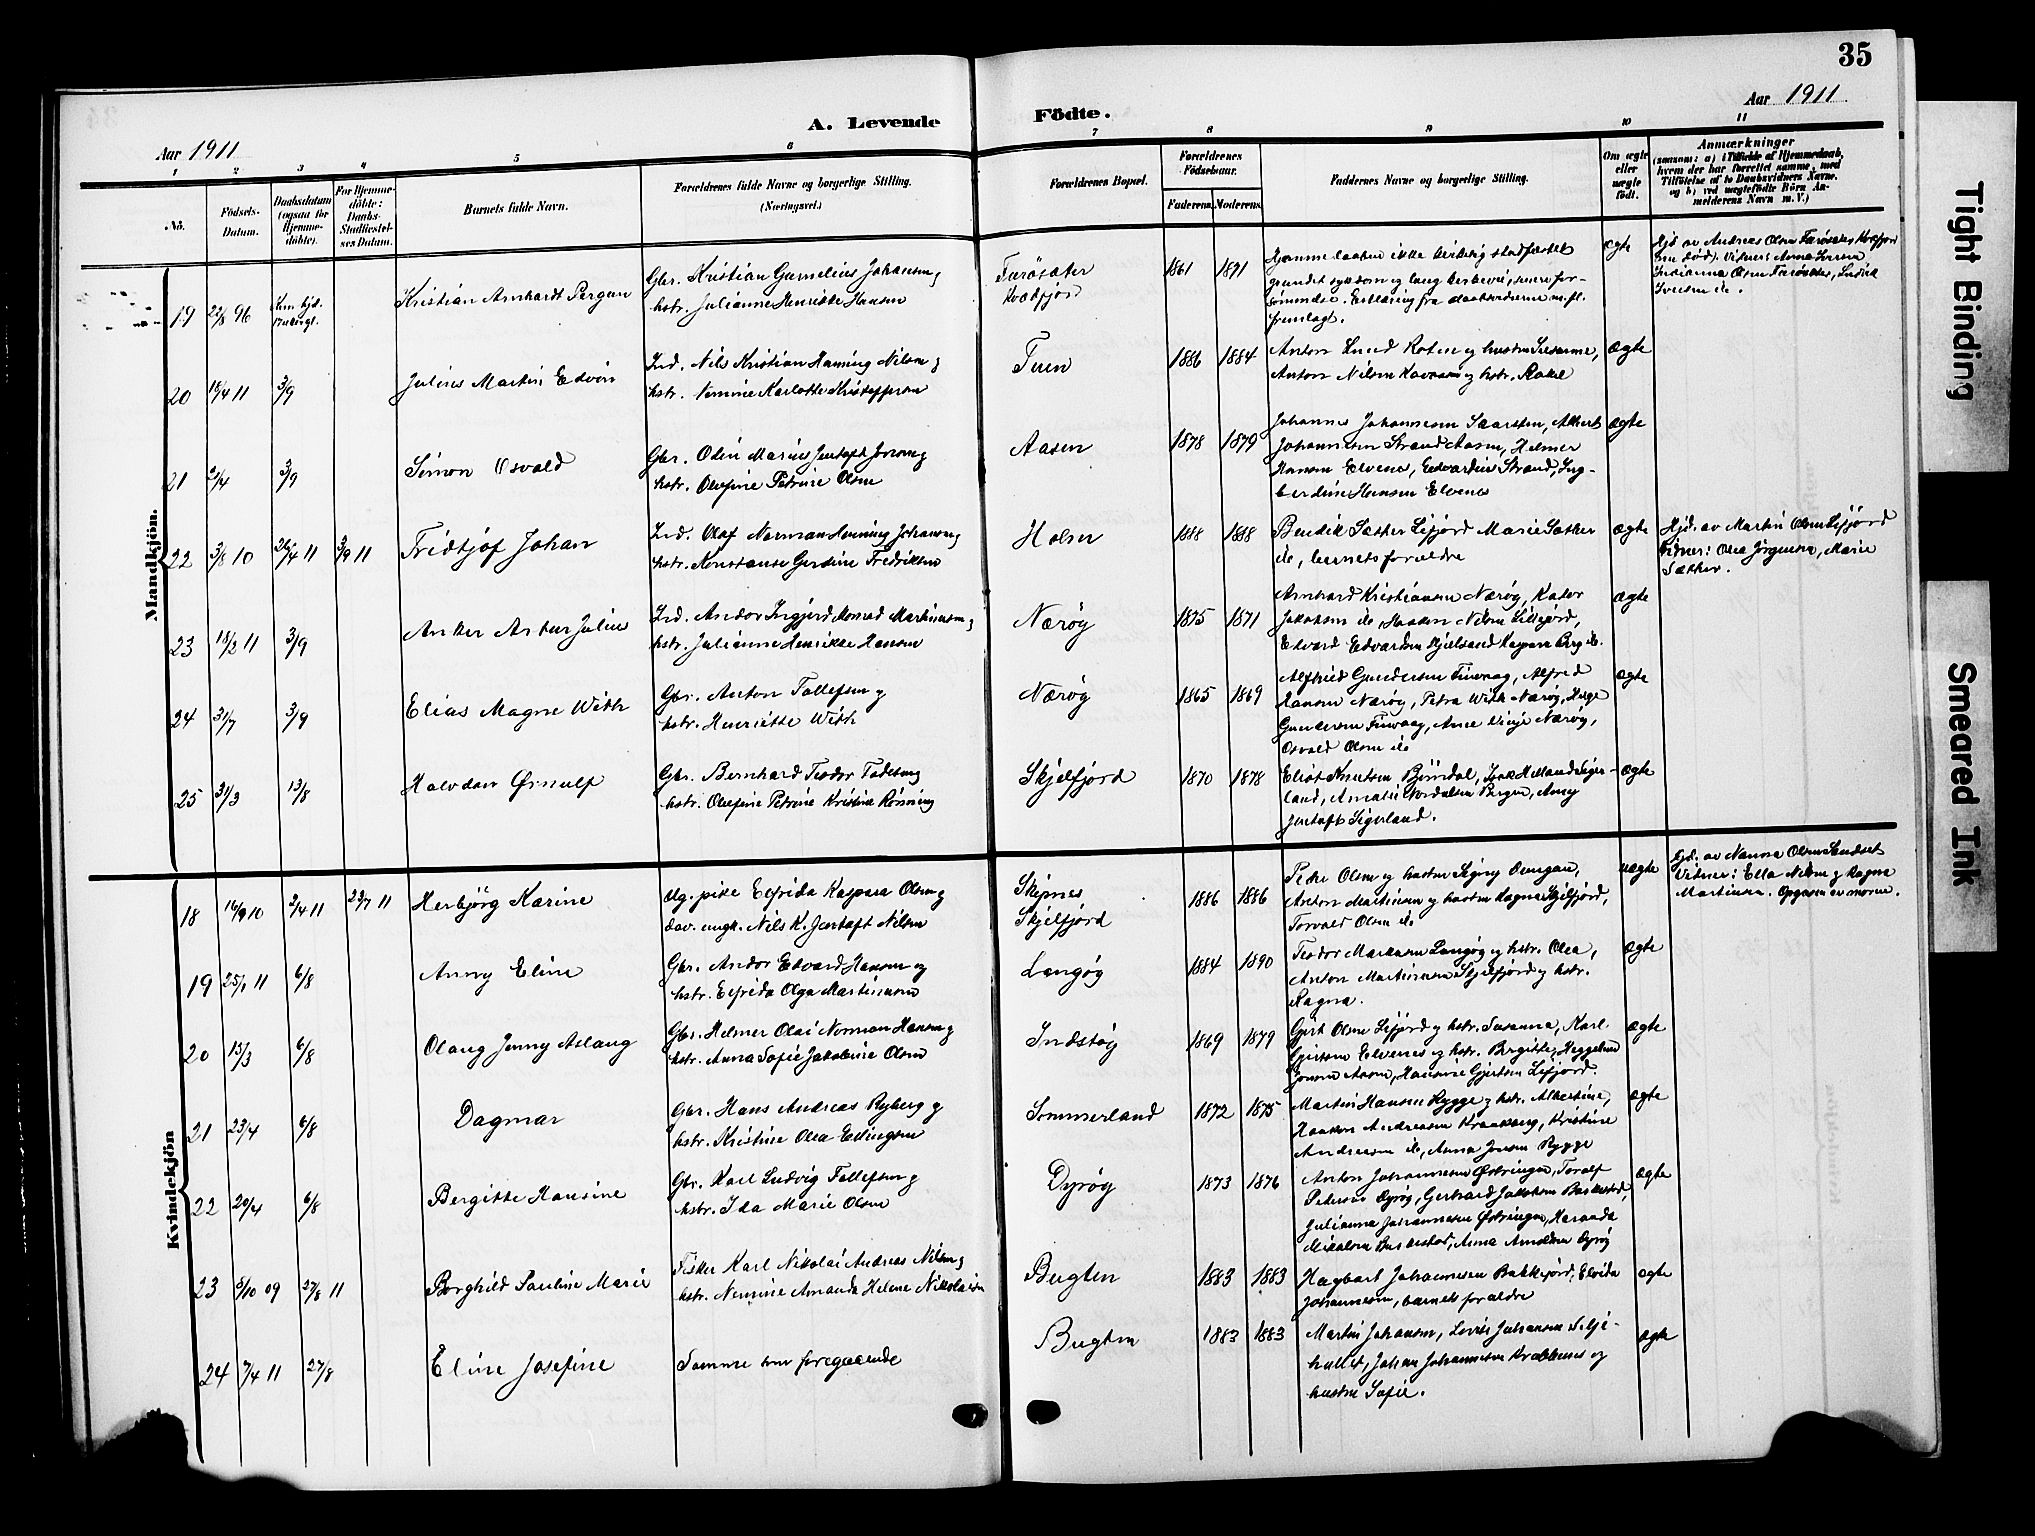 35
Aar 1911
Aar 1911
A. Levende Födte.
1 2 3 4 5 6 7 8 9 10 11
No.
Födsels-
Datum.
Daabsdatum
(ogsaa for
Hjemme-
döbte).
For Hjemme-
döbte:
Daabs-
Stadfæstel-
ses Datum.
Barnets fulde Navn.
Forældrenes fulde Navne og borgerlige Stilling.
(Næringsvei.)
Forældrenes Bopæl.
Forældrenes
Födselsaar.
Faderens. Moderens.
Faddernes Navne og borgerlige Stilling.
Om ægte
eller
uægte
født.
Anmærkninger
(saasom: a) i Tilfælde af Hjemmedaab,
hvem der har forrettet samme, med
Tilföielse af to Daabsvidners Navne,
og b) ved uægtefödte Börn An-
melderens Navn m. V.)
Mandkjön.
19 22/8 96 Kun hjd.
Kristian Arnhardt Pergan
Gbr. Kristian Gurnelius Johansen og
hstr. Julianne Henrikke Hansen
Furøsæter
Kvæfjord
1861 1871
Hjemmedaaben ikke kirkelig stadfæstet
grundet sygdom og lang kirkevei, senere for-
sømmelse. Erklæring fra daabsvidnerne m.fl.
fremlagt.
ægte
Hjd. av Andreas Olsen Furøsæter Kvæfjord
(nu død). Vidner: Anna Iversen
20 18/4 11 3/9
Julius Martin Edvin
Ind. Nils Kristian Henning Nilsen og
hstr. Nemmie Karlotte Kristoffersen
Tuen
1886 1884
Anton Knud Roten og hustru Susanne,
Anton Nilsen Havnen og hstr. Rakel
ægte
21 2/4 3/9
Simon Osvald
Gbr. Odin Marius Jentoft Jonsen og
hstr. Olefine Petrine Olsen
Aasen
1878 1879
Johannes Johannesen Saarsten, Albert
Johannesen Strand Aasen, Helmer
Hansen Elvenes, Edvardine Strand, Ing-
berdine Hansen Elvenes
ægte
22 3/8 10 26/4 11 3/9 11
Fridtjof Johan
Ind. Olaf Norman Henning Johansen og
hstr. Konstanse Gerdine Fredriksen
Holm
1888 1888
Bendik Sæther Lifjord Marie Sæther
ib., barnets forældre
ægte
Hjd. av Martin Olsen Lifjord
Vidner: Olea Jørgensen, Marie
Sæther.
23 18/2 11 3/9
Anker Artur Julius
Ind. Andor Ingjerd Konrad Martinussen og
hstr. Julianne Henrikke Hansen
Nærøg
1875 1871
Arnhard Kristiansen Nærøg, Kator
Jakobsen ib., Haakon Nilsen Lilfjord,
Edvard Edvardsen Skjelsand Kaspara Berg ib.
ægte
24 31/7 3/9
Elias Magne With
Gbr. Anton Tollefsen og
hstr. Henriette With
Nærøg
1865 1869
Alfhild Gundersen Finvaag, Alfred
Hansen Nærøg, Petra With Nærøg, Helge
Gundersen Finvaag, Anne Vinje Nærøg,
Osvald Olsen ib.
ægte
25 31/3 13/8
Halvdan Ørnulf
Gbr. Bernhard Teodor Tollefsen og
hstr. Olufine Petrine Kristine Rönning
Skjelfjord
1870 1878
Eliot Knutsen Björndal, Isak Helland Siger-
land, Amalie Nordalsen Bergen, Anny
Jentoft Sigerland.
ægte
Kvindekjön
18 16/9 10 2/4 11 23/7 11
Herbjörg Karine
Ug. pike Elfrida Kaspara Olsen og
dav. ungk. Nils K. Jentoft Nilsen
Skipnes
Skjelfjord
1886 1886
Peder Olsen og hustru Signy Omgan,
Anton Martinsen og hustru Ragna Skjelfjord,
Torvald Olsen ib.
uægte
Hjd. av Nanna Olsen Sandset
Vidner: Ella Nilsen og Ragna
Martinsen. Opgaven av moren.
19 25/1 11 6/8
Anny Eline
Gbr. Andor Edvard Hansen og
hstr. Elfrida Olga Martinussen
Langøg
1884 1890
Teodor Markussen Langøg og hstr. Olea,
Anton Martinussen Skjelfjord og hstr.
Ragna.
ægte
20 15/3 6/8
Olaug Jenny Aslaug
Gbr. Helmer Olai Norman Hansen og
hstr. Anna Sofie Jakobine Olsen
Indstøg
1869 1879
Gjert Olsen Lifjord og hstr. Susanna, Karl
Gjertsen Elvenes og hstr. Birgitte, Heggeline
Jonsen Aasen, Hansine Gjertsen Lifjord.
ægte
21 23/4 6/8
Dagmar
Gbr. Hans Andreas Ryberg og
hstr. Kristine Olea Ellingsen
Sommerland
1872 1875
Martin Hansen Rygge og hstr. Albertine,
Haakon Andreassen Kraakberg, Kristine
Andreassen ib., Anna Jensen Rygge
ægte
22 29/4 6/8
Bergitte Hansine
Gbr. Karl Ludvig Tollefsen og
hstr. Ida Marie Olsen
Dyrøg
1873 1876
Anton Johannesen Østringen, Toralf
Petersen Dyrøg, Gerhard Jakobsen Baskestad,
Julianna Johannesen Østringen, Haranda
Mikalsen Baskestad, Anna Arnoldsen Dyrög
ægte
23 3/10 09 27/8 11
Borghild Pauline Marie
Fisker Karl Nikolai Andreas Nilsen og
hstr. Nemmie Amanda Helene Nikolaisen
Bugten
1883 1883
Hagbart Johannesen Bakkejord, Elvida
Johannesen, barnets forældre
ægte
24 7/4 11 27/8
Eline Josefine
Samme som foregaaende
Bugten
1883 1883
Martin Johansen, Lovise Johansen Selje-
hullet, Johan Johannesen Krabbenes og
hustru Sofie.
ægte
Tight Binding
Smeared Ink